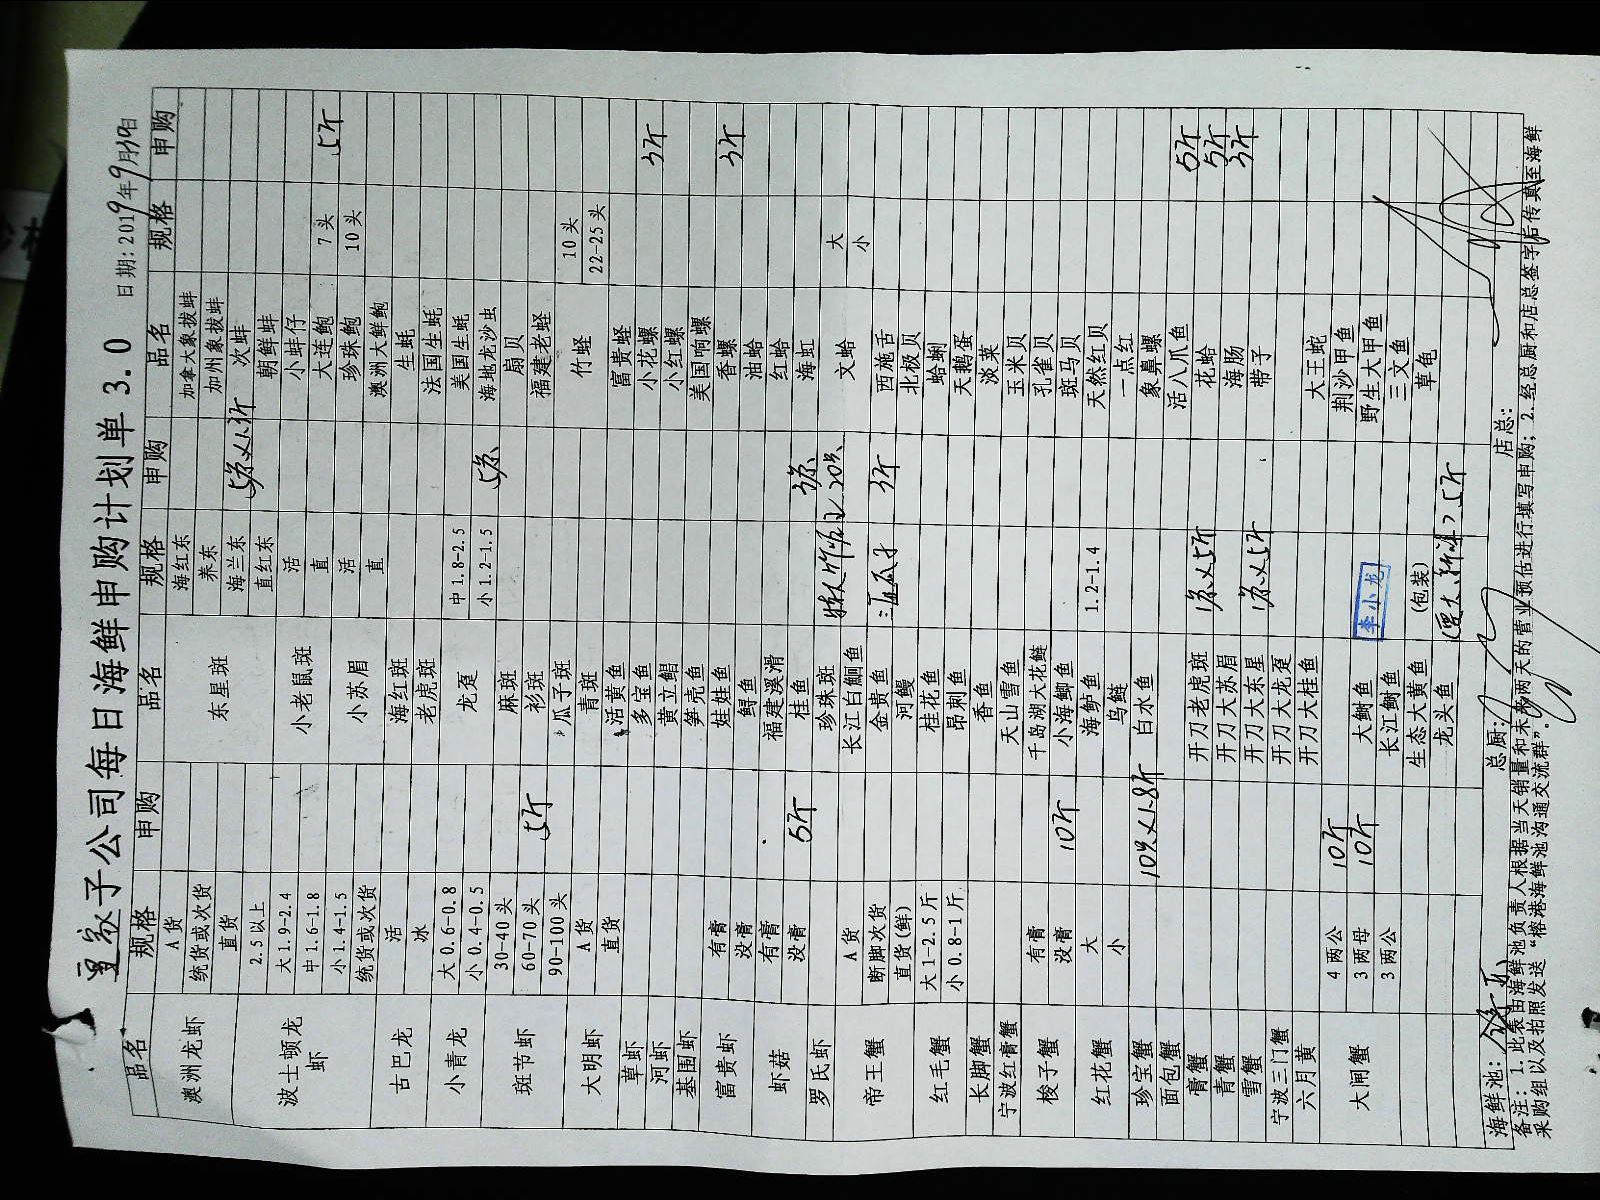 子公司每日海鲜申购计划单 3.0 日期:2019年9月
品名 规格 申购 品名 规格 申购 品名 规格 申购
澳洲龙虾 A货 东星斑 海红东 加拿大象拔蚌
统货或次货 养东 加州象拔蚌
直货 海兰东 5条x1.3斤 次蚌
波士顿龙虾 2.5以上 直红东 朝鲜蚌
大1.9-2.4 小老鼠斑 活 小蚌仔
中1.6-1.8 直 大连鲍 7头 5斤
小1.4-1.5 小苏眉 活 珍珠鲍 10头
统货或次货 直 澳洲大鲜鲍
古巴龙 活 海红斑 生蚝
冰 老虎斑 法国生蚝
小青龙 大0.6-0.8 龙趸 中1.8-2.5 美国生蚝
小0.4-0.5 小1.2-1.5 5条 海地龙沙虫
斑节虾 30-40头 麻斑 扇贝
60-70头 5斤 杉斑 福建老蛏
90-100头 瓜子斑 竹蛏 10头
大明虾 A货 青斑 22-25头
直货 活黄鱼 富贵蛏
草虾 多宝鱼 小花螺 3斤
河虾 黄立鲳 小红螺
基围虾 笋壳鱼 美国响螺
富贵虾 有膏 娃娃鱼 香螺 3斤
没膏 鲟鱼 油蛤
虾菇 有膏 福建溪滑 红蛤
没膏 5斤 桂鱼 3条 海虹
罗氏虾 珍珠斑 文蛤 大
帝王蟹 A货 长江白鮰鱼 小
断脚次货 金贵鱼 3斤 西施舌
直货(鲜) 河鳗 北极贝
红毛蟹 大1-2.5斤 桂花鱼 蛤蜊
小0.8-1斤 昂刺鱼 天鹅蛋
长脚蟹 香鱼 淡菜
宁波红膏蟹 天山雪鱼 玉米贝
梭子蟹 有膏 千岛湖大花鲢 孔雀贝
没膏 10斤 小海鲫鱼 斑马贝
红花蟹 大 海鲈鱼 1.2-1.4 天然红贝
小 乌鲢 一点红
珍宝蟹 10只x1.8斤 白水鱼 象鼻螺
面包蟹 活八爪鱼 5斤
膏蟹 开刀老虎斑 1条x5斤 花蛤 5斤
青蟹 开刀大苏眉 海肠 3斤
雪蟹 开刀大东星 1条x5斤 带子
宁波三门蟹 开刀大龙趸
六月黄 开刀大桂鱼 大王蛇
大闸蟹 4两公 10斤 荆沙甲鱼
3两母 10斤 大鲥鱼 李小龙 野生大甲鱼
3两公 长江鲥鱼 三文鱼
生态大黄鱼 (包装) 草龟
龙头鱼 5斤
海鲜池: 总厨: 店总:
备注: 1.此表由海鲜池负责人根据当天销量和未来两天的营业预估进行填写申购; 2.经总厨和店总签字后传真至海鲜
采购组以及拍照发送“榕港海鲜池沟通交流群”.